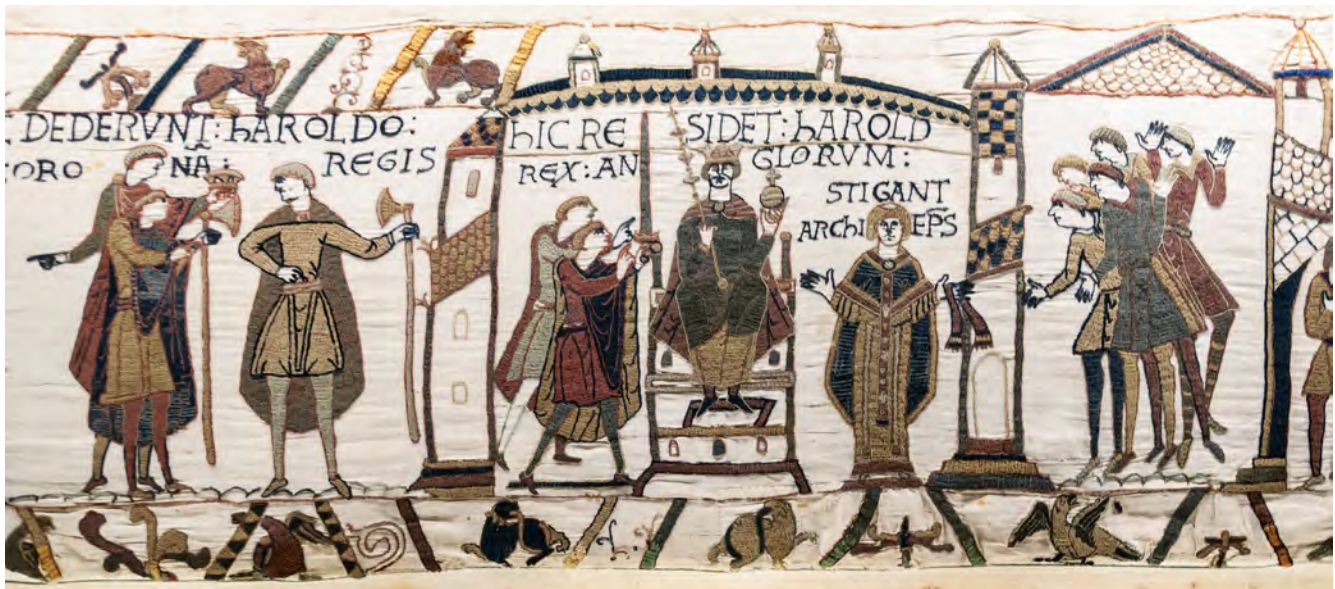 DEDERVNT: hAROLDO:
CORONA: REGIS
hIC RESIDET: hAROLD
REX: ANGLORVM:
STIGANT
ARChI EP̄S